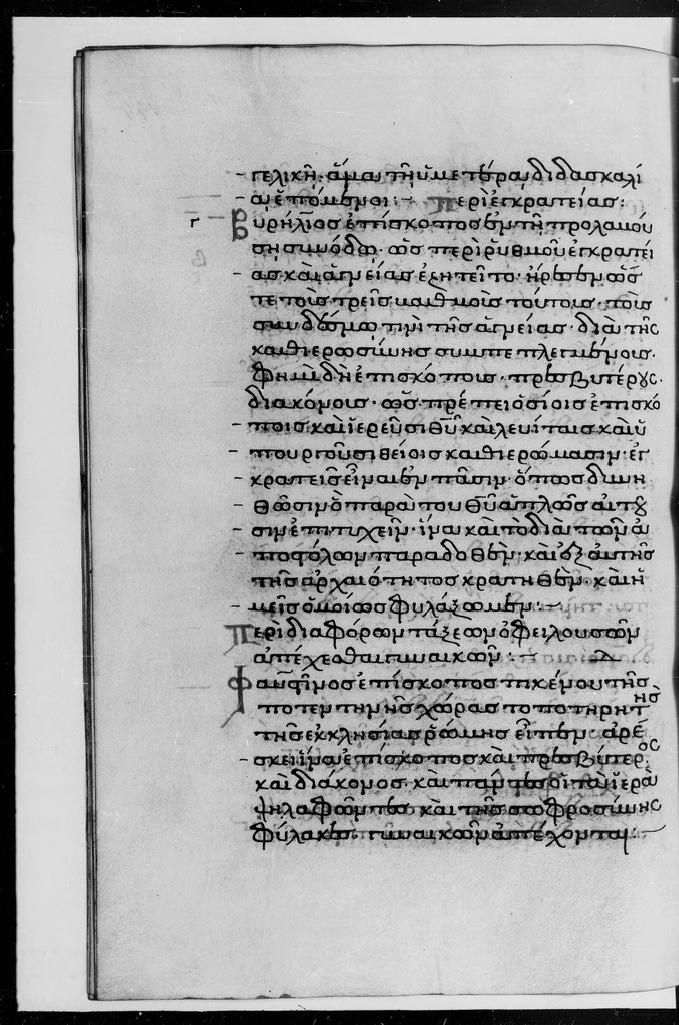 γελικῆ· ἅμα τῆ ὑμετέρα διδασκαλί
α, ἑπόμενοι :– Περὶ ἐγκρατείας :
Γ Αυρήλιος ἐπίσκοπος ἐν τῆ προλαβού
ση συνόδω. ὡς περὶ ῥυθμοῦ ἐγκρατεί
ας καὶ ἁγνείας ἐζητεῖτο· ἤρεσεν ὥς
τε τοὺς τρεῖς βαθμοὺς τούτους· τοὺς
συνδέσμω τινὶ τῆς ἁγνείας· διὰ τῆς
καθιερωσύνης συμπεπλεγμένους.
φημὶ δὴ ἐπισκόπους· πρεσβυτέρους·
διακόνους· ὡς πρέπει ὁσίοις ἐπισκό
ποις καὶ ἱερεῦσι θῦ καὶ λευίταις καὶ ὑ
πουργοῦσι θείοις καθιερώμασιν· ἐγ
κρατεῖς εἶναι ἐν πᾶσιν· ὅπως δυνη
θῶσιν ὃ παρὰ του θῦ ἁπλῶς αἰτοῦ
σιν ἐπιτυχεῖν· ἵνα καὶ τὸ διὰ τῶν ἀ
ποστόλων παραδοθὲν· καὶ ἐξ αὐτῆς
τῆς ἀρχαιότητος κρατηθὲν· καὶ ἡ
μεῖς ὁμοίως φυλάξωμεν :–
Περὶ διαφόρων τάξεων ὀφειλουσῶν
ἀπέχεσθαι γυναικῶν :–
Φαυστῖνος ἐπίσκοπος πικένου τῆς
ποτεντηνῆς χώρας τοποτηρητὴς
τῆς ἐκκλησίας ῥώμης εἶπεν· ἀρέ
σκει ἵνα ἐπίσκοπος καὶ πρεσβύτερος
καὶ διάκονος· καὶ πάντες οἱ τὰ ἱερὰ
ψηλαφῶντες καὶ τῆς σωφροσύνης
φύλακες· γυναικῶν ἀπέχονται :–